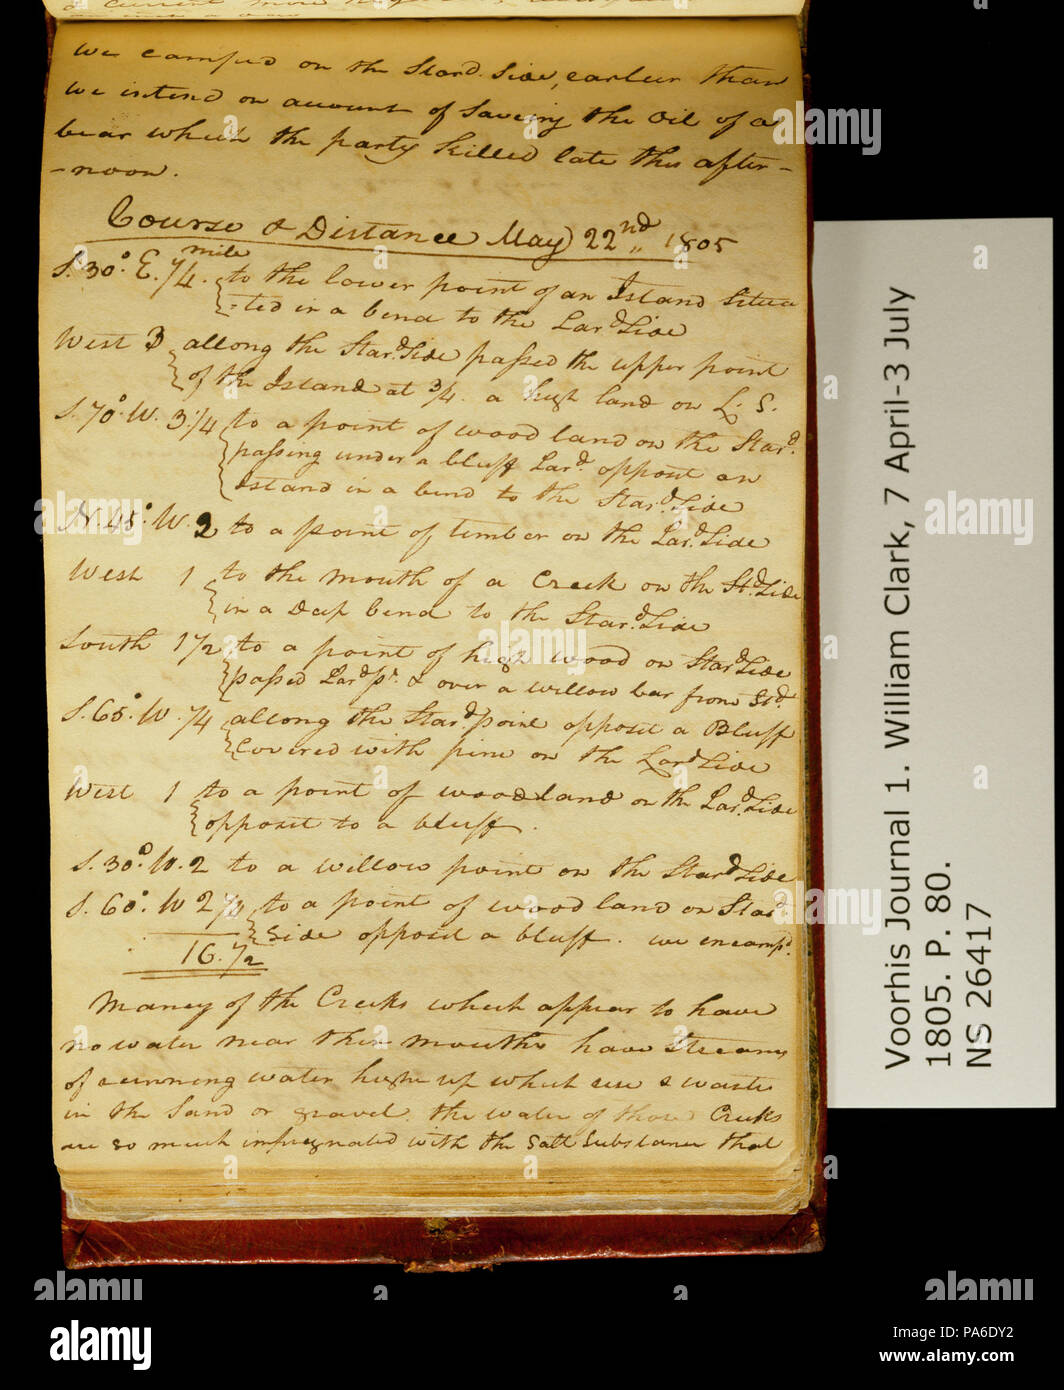 we camped on the Stard. Side, earlier than
we intend on account of Saveing the oil of a
bear which the party killed late this after-
-noon.
Course & Distance May 22nd 1805
S. 30° E. ¾. mile to the lower point of an Island Situa
-ted in a bend to the Lard. Side
West 3 allong the Stard. Side passed the upper point
of the Island at ¾. a high land on L. S.
S. 70°. W. 3 ¼ to a point of wood land on the Stard.
passing under a bluff Lard. opposit an
Island in a bend to the Stard. Side
N. 45°. W. 2 to a point of timber on the Lard. Side
West 1 to the mouth of a Creek on the Std. Side
in a Deep bend to the Stard. Side
South 1 ½ to a point of high wood on Stard. Side
passed Lard. pt. & over a willow bar from Std.
S. 60°. W. ¼ allong the Stard. point opposit a Bluff
Covered with pine on the Lard. Side
West 1 to a point of woodland on the Lard. Side
opposit to a bluff.
S. 30°. W. 2 to a willow point on the Stard. Side
S. 60°. W 2 ½ to a point of wood land on Stard.
Side opposit a bluff. we encampd.
16. ½
Maney of the Creeks which appear to have
no water near their mouths have Streams
of running water higher up which rise & waste
in the Sand or gravel. the water of those Creeks
are so much impregnated with the Salt Substance that
Voorhis Journal 1. William Clark, 7 April-3 July
1805. P. 80.
NS 26417
alamy
alamy
Image ID: PA6DY2
www.alamy.com